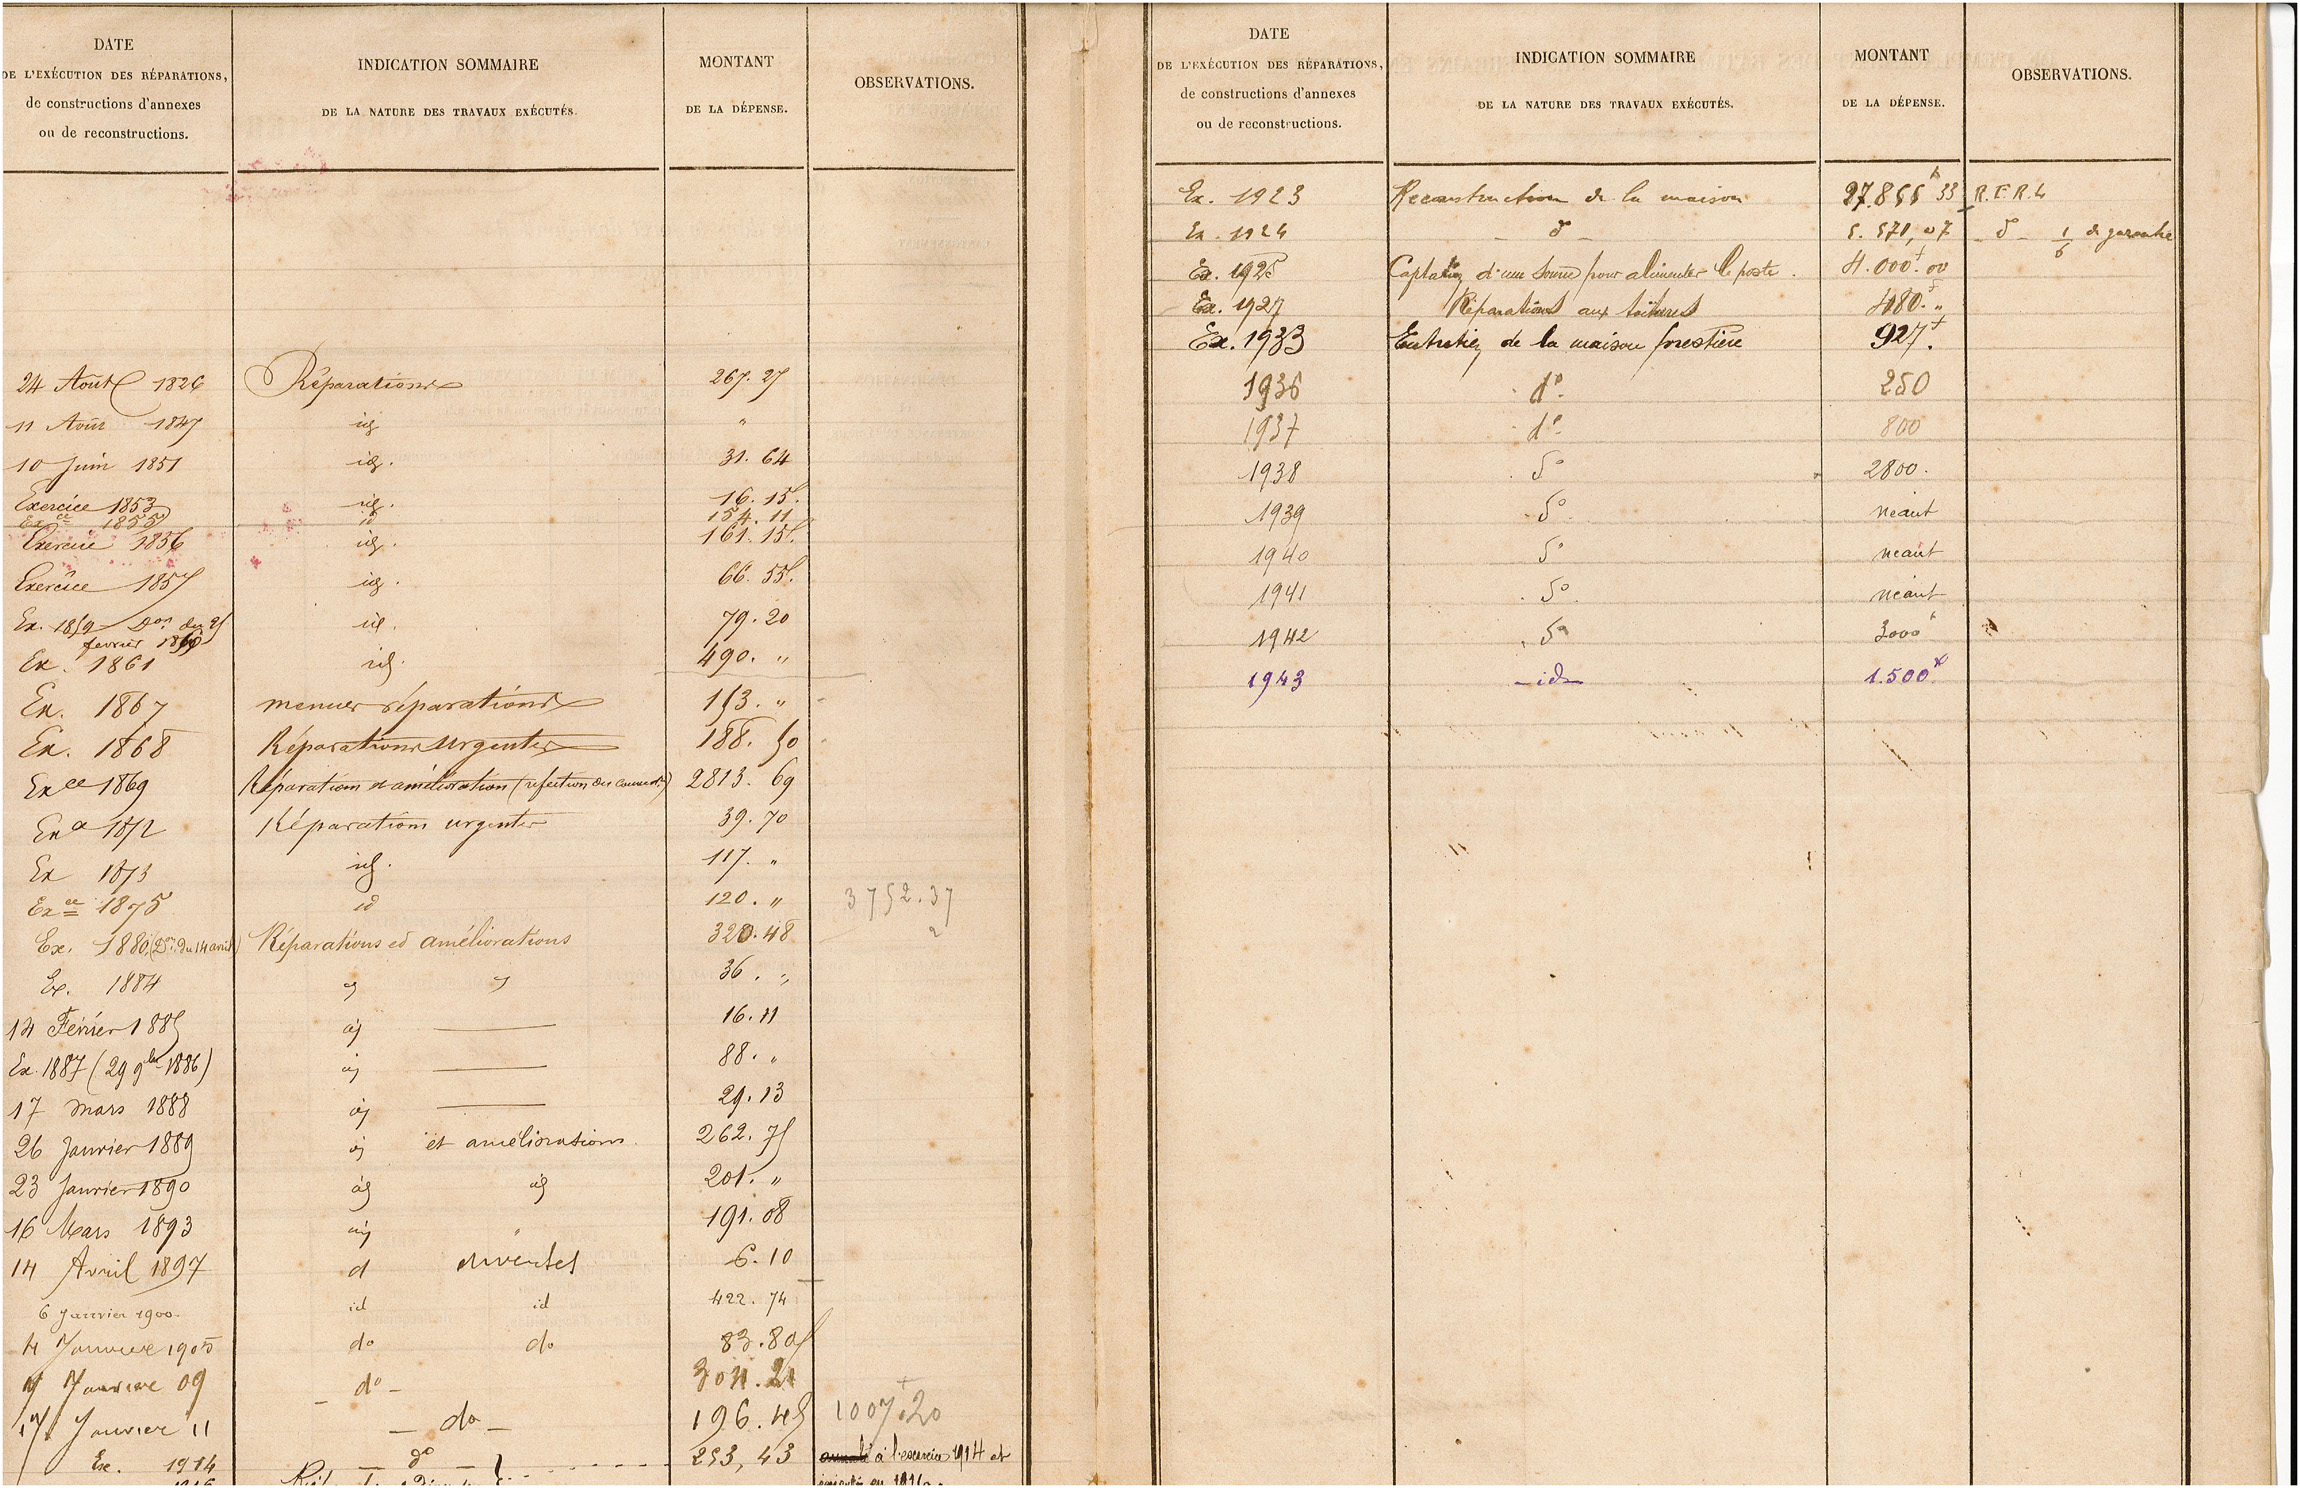 DATE
DE L'EXÉCUTION DES RÉPARATIONS,
de constructions d'annexes
ou de reconstructions.
INDICATION SOMMAIRE
DE LA NATURE DES TRAVAUX EXÉCUTÉS.
MONTANT
DE LA DÉPENSE.
OBSERVATIONS.
24 Août 1826 Réparations 267. 27
11 Août 1847 id "
10 Juin 1851 id. 31. 64
Exercice 1853 id. 16. 15
Exce 1855 id 154. 11
Exercice 1856 id. 161. 15
Exercice 1857 id. 66. 55
Ex. 1859 Don du 25 id. 79. 20
fevrier 1860
Ex. 1861 id. 490. "
Ex. 1867 menues réparations 153. "
Ex. 1868 Réparations urgentes 188. 50
Exce 1869 Réparations et amélioration (refection des couvert.) 2813. 69
Exce 1872 Réparations urgentes 39. 70
Ex 1873 id. 117. "
Exce 1875 id 120. " 3752.37
Ex. 1880 (Don du 14 avril) Réparations et améliorations 320.48 2
Ex. 1884 " " 36. "
14 Février 1885 id 16. 11
Ex. 1887 (29 9bre 1886) id 88. "
17 mars 1888 id 29. 13
26 Janvier 1889 id et améliorations. 262. 75
23 Janvier 1890 id id 201. "
16 Mars 1893 id " 191. 08
14 Avril 1897 d diverses 6. 10
6 Janvier 1900. id id 422. 74
4 Janvier 1905 do do 83.80
9 Janvier 09 _ do _ 304.21
17 Janvier 11 _ do _ 196.45 1007.20
Ex. 1914 _ do _ 253, 43 à l'exercice 1914 et
1916 exécutés en 1916.
DATE
DE L'EXÉCUTION DES RÉPARATIONS,
de constructions d'annexes
ou de reconstructions.
INDICATION SOMMAIRE
DE LA NATURE DES TRAVAUX EXÉCUTÉS.
MONTANT
DE LA DÉPENSE.
OBSERVATIONS.
Ex. 1923 Reconstruction de la maison 27.855 33 R.F.R.L
Ex. 1924 _ do _ 5.571,07 _ do _ 1/6 de garantie
Ex. 1925 Captation d'une source pour alimenter le poste. 4.000. 00
Ex. 1927 Réparations aux toitures 480. "
Ex. 1933 Entretien de la maison forestière 927.
1936 do 250
1937 do 800
1938 do 2800.
1939 do neant
1940 do neant
1941 do néant
1942 do 3000
1943 _ id _ 1.500